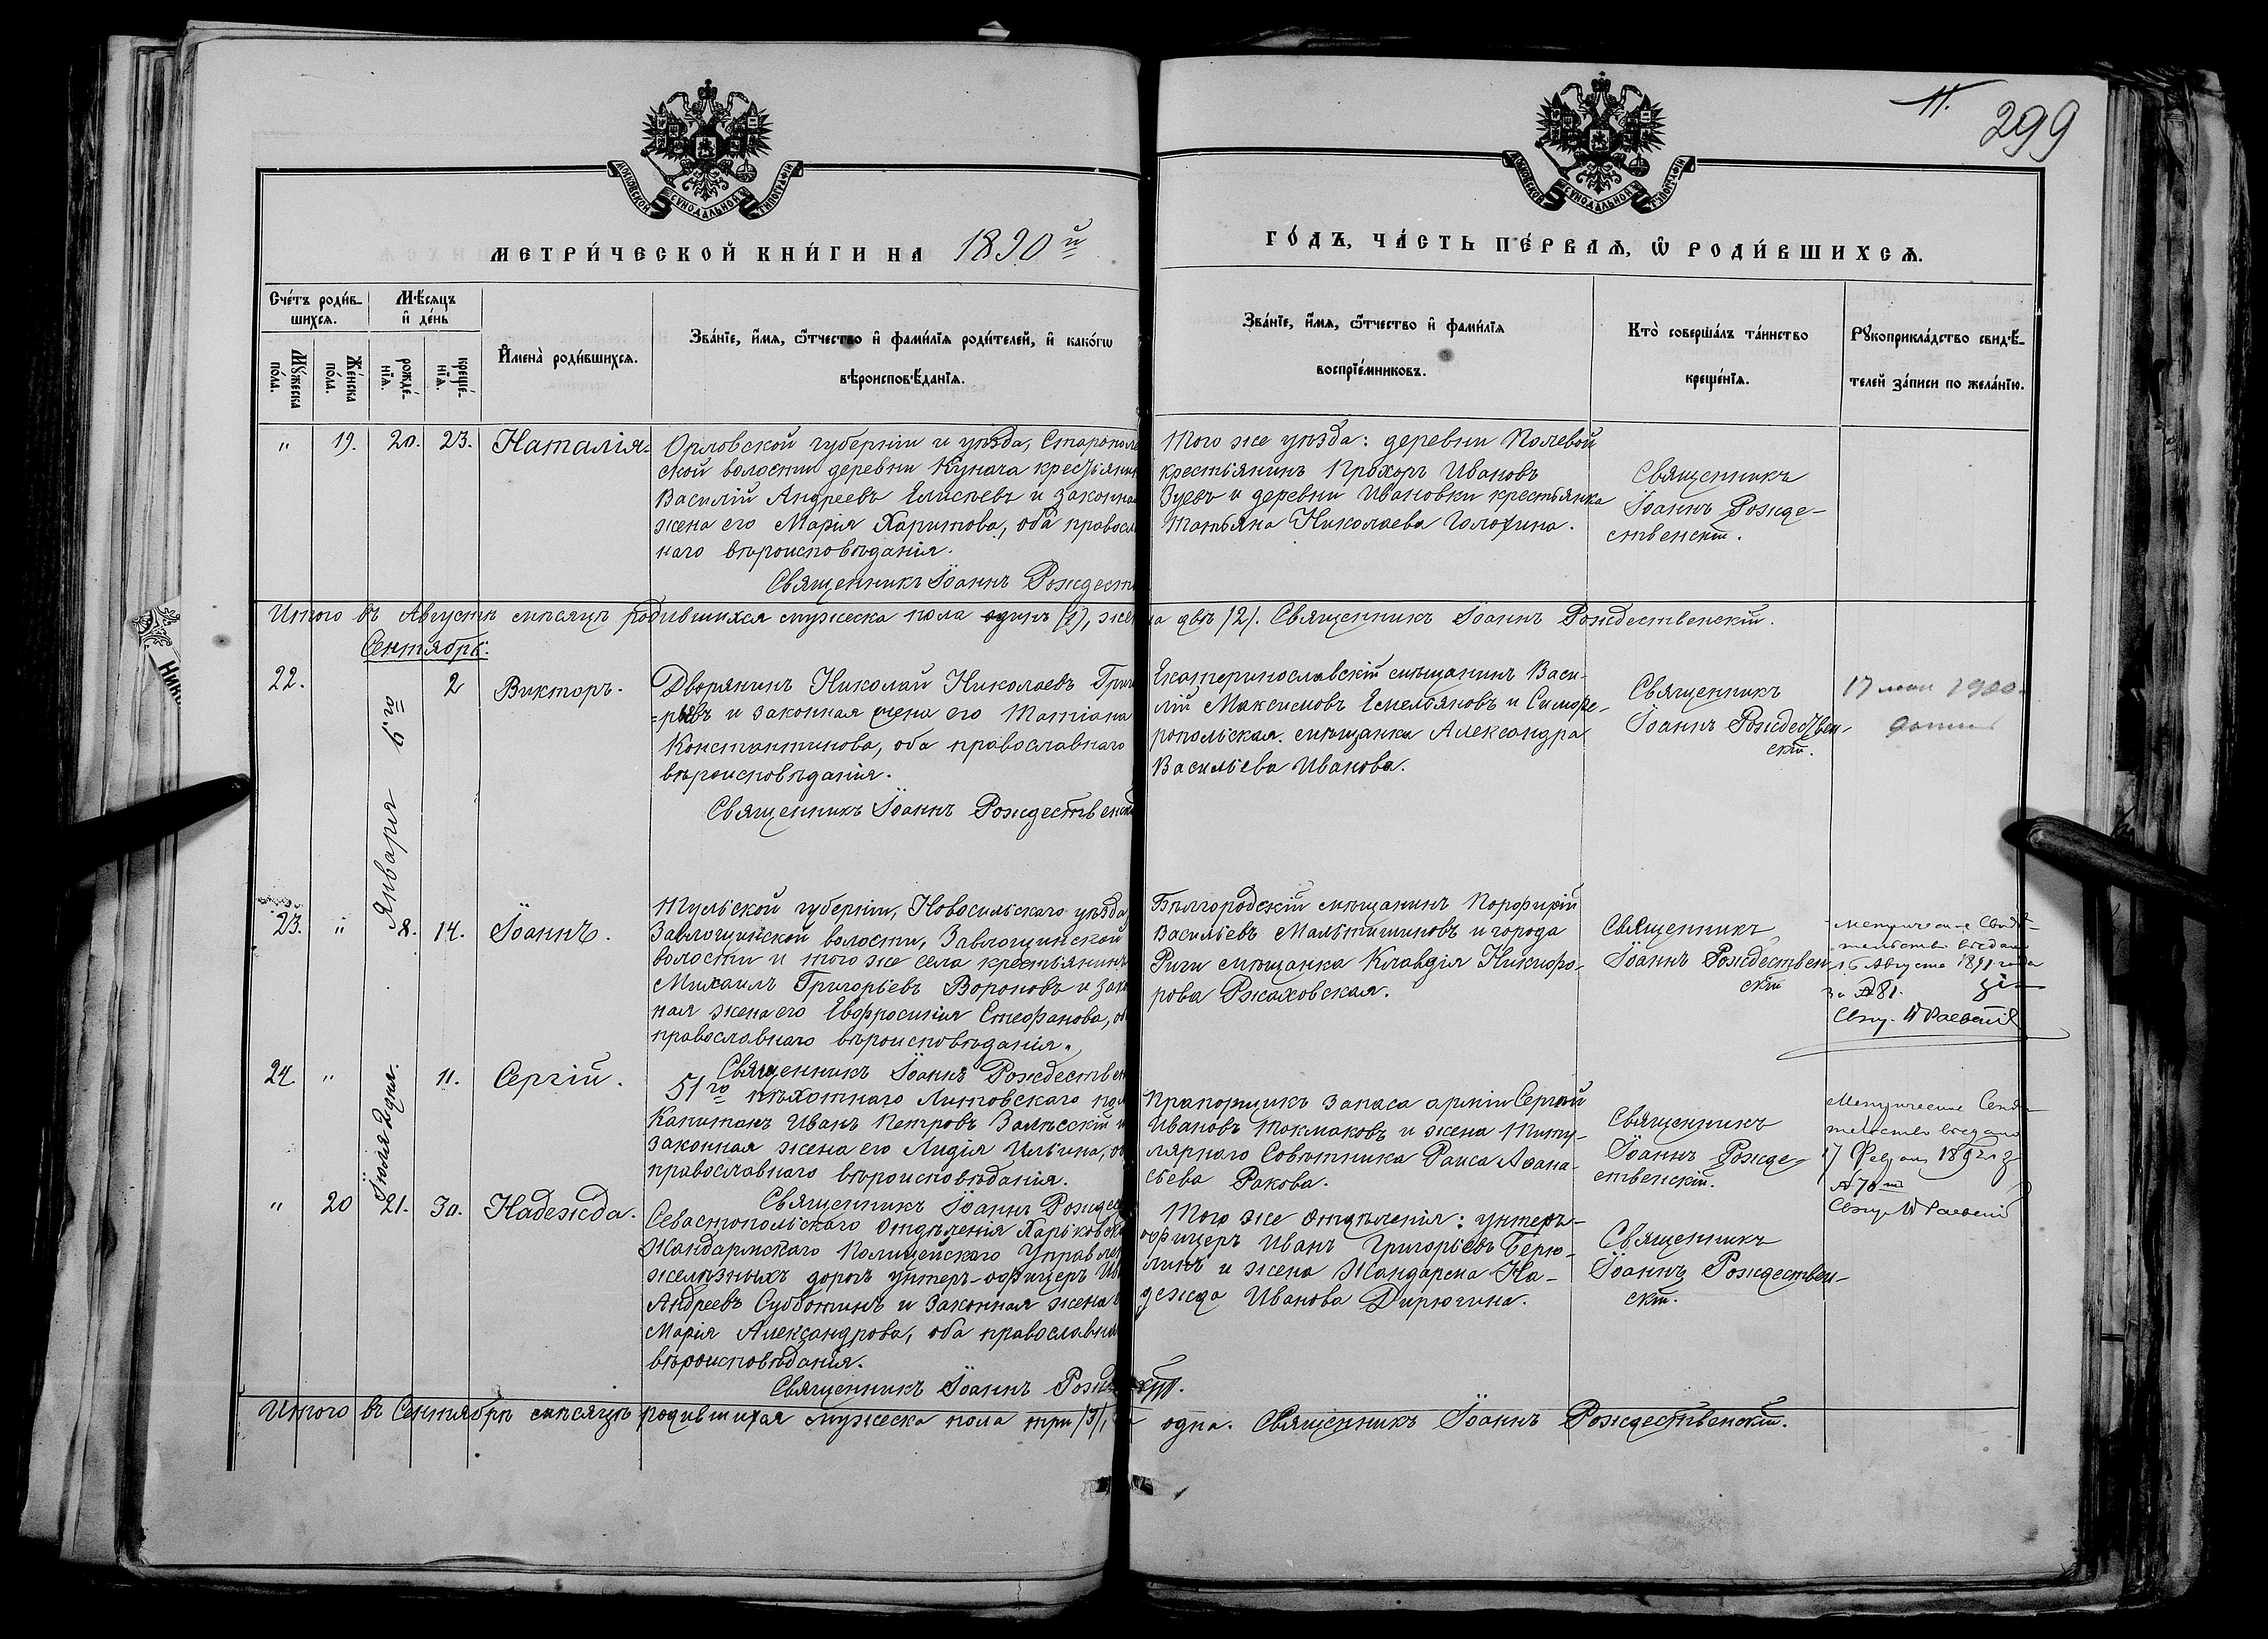 11.
299
МОСКОВСКОЙ СУНОДАЛЬНОЙ ТИПОГРАФІИ
МОСКОВСКОЙ СУНОДАЛЬНОЙ ТИПОГРАФІИ
МЕТРИ́ЧЕСКОЙ КНИ́ГИ НА 1890й
ГО́ДЪ, ЧА́СТЬ ПЕ́РВАѦ, Ѡ РОДИ́ВШИХСѦ.
Сче́тъ роди́в-
шихсѧ.
Мѣ́сѧцъ
и де́нь
Мꙋ́жеска
по́ла.
Же́нска
по́ла.
рожде́-
нїѧ.
креще́-
нїѧ.
Имена̀ роди́вшихсѧ.
Зва́нїе, и́мѧ, ѻ́тчество и фами́лїѧ роди́телей, и како́гѡ
вѣроисповѣ́данїѧ.
Зва́нїе, и́мѧ, ѻ́тчество и фами́лїѧ
воспрїе́мниковъ.
Кто̀ соверша́лъ та́инство
креще́нїѧ.
Рꙋкоприкла́дство свидѣ́-
телей за́писи по жела́нїю.
" 19. 20. 23. Наталія.
Орловской губерніи и уѣзда, Старополь
ской волости деревни Кунача крестьянин
Василій Андреевъ Елисѣевъ и законна
жена его Марія Харитова, оба правосл
наго вѣроисповѣданія.
Священникъ Іоаннъ Рождест
Того же уѣзда: деревни Полевой
крестьянинъ Прохоръ Ивановъ
Зуевъ и деревни Ивановки крестьянка
Татьяна Николаева Голохина.
Священникъ
Іоаннъ Рожде-
ственскій.
Итого въ Августѣ мѣсяцѣ родившихся мужеска пола одинъ (1), жен на двѣ (2). Священникъ Іоаннъ Рождественскій.
Сентябрь.
22. Января 6го 2 Викторъ.
Дворянинъ Николай Николаевъ Григ
=рьевъ и законная жена его Татіана
Константинова, оба православнаго
вѣроисповѣданія.
Священникъ Іоаннъ Рождественск
Екатеринославскій мѣщанинъ Васи-
лій Максимовъ Емельяновъ и Симфе-
ропольская мѣщанка Александра
Васильева Иванова.
Священникъ
Іоаннъ Рождествен-
скій.
17 мая 1900
23. " 8. 14. Іоаннъ.
Тульской губерніи, Новосильскаго уѣзда
Завлощинской волости, Завлощинской
волости и того же села крестьянинъ
Михаилъ Григорьевъ Вороновъ и зако
ная жена его Евфросинія Стефанова, об
православнаго вѣроисповѣданія.
Священникъ Іоаннъ Рождествен
Бѣлгородскій мѣщанинъ Порфирій
Васильевъ Мальтишиновъ и города
Риги мѣщанка Клавдія Никифо-
рова Ржаховская.
Священникъ
Іоаннъ Рождествен-
скій
Метрическое Свидѣ-
тельство выдано
16 Августа 1891 года
за №81.
Свящ. Раевскій
24. " Іюля 2 дня. 11. Сергій.
51го пѣхотнаго Литовскаго пол
Капитанъ Иванъ Петровъ Залѣсскій и
законная жена его Лидія Ильина, об
православнаго вѣроисповѣданія.
Священникъ Іоаннъ Рождес
Прапорщикъ запаса арміи Сергій
Ивановъ Токмаковъ и жена Титу-
лярнаго Совѣтника Раиса Аѳана-
сьева Ракова.
Священникъ
Іоаннъ Рожде-
ственскій.
Метрическое Свидѣ-
тельство выдано
17 1892 г
№70
Свящ. Раевскій
" 20 21. 30. Надежда.
Севастопольскаго Отдѣленія Харьковск
Жандармскаго Полицейскаго Управлен
желѣзныхъ дорогъ унтеръ-офицеръ Ив
Андреевъ Субботинъ и законная жена
Марія Александрова, оба православна
вѣроисповѣданія.
Священникъ Іоаннъ Рожд скій.
Того же Отдѣленія: унтеръ-
офицеръ Иванъ Григорьевъ Берю-
линъ и жена Жандарма На-
дежда Иванова Дирюгина.
Священникъ
Іоаннъ Рождествен-
скій.
Итого въ Сентябрѣ мѣсяцѣ родившихся мужеска пола три (3), одна. Священникъ Іоаннъ Рождественскій.